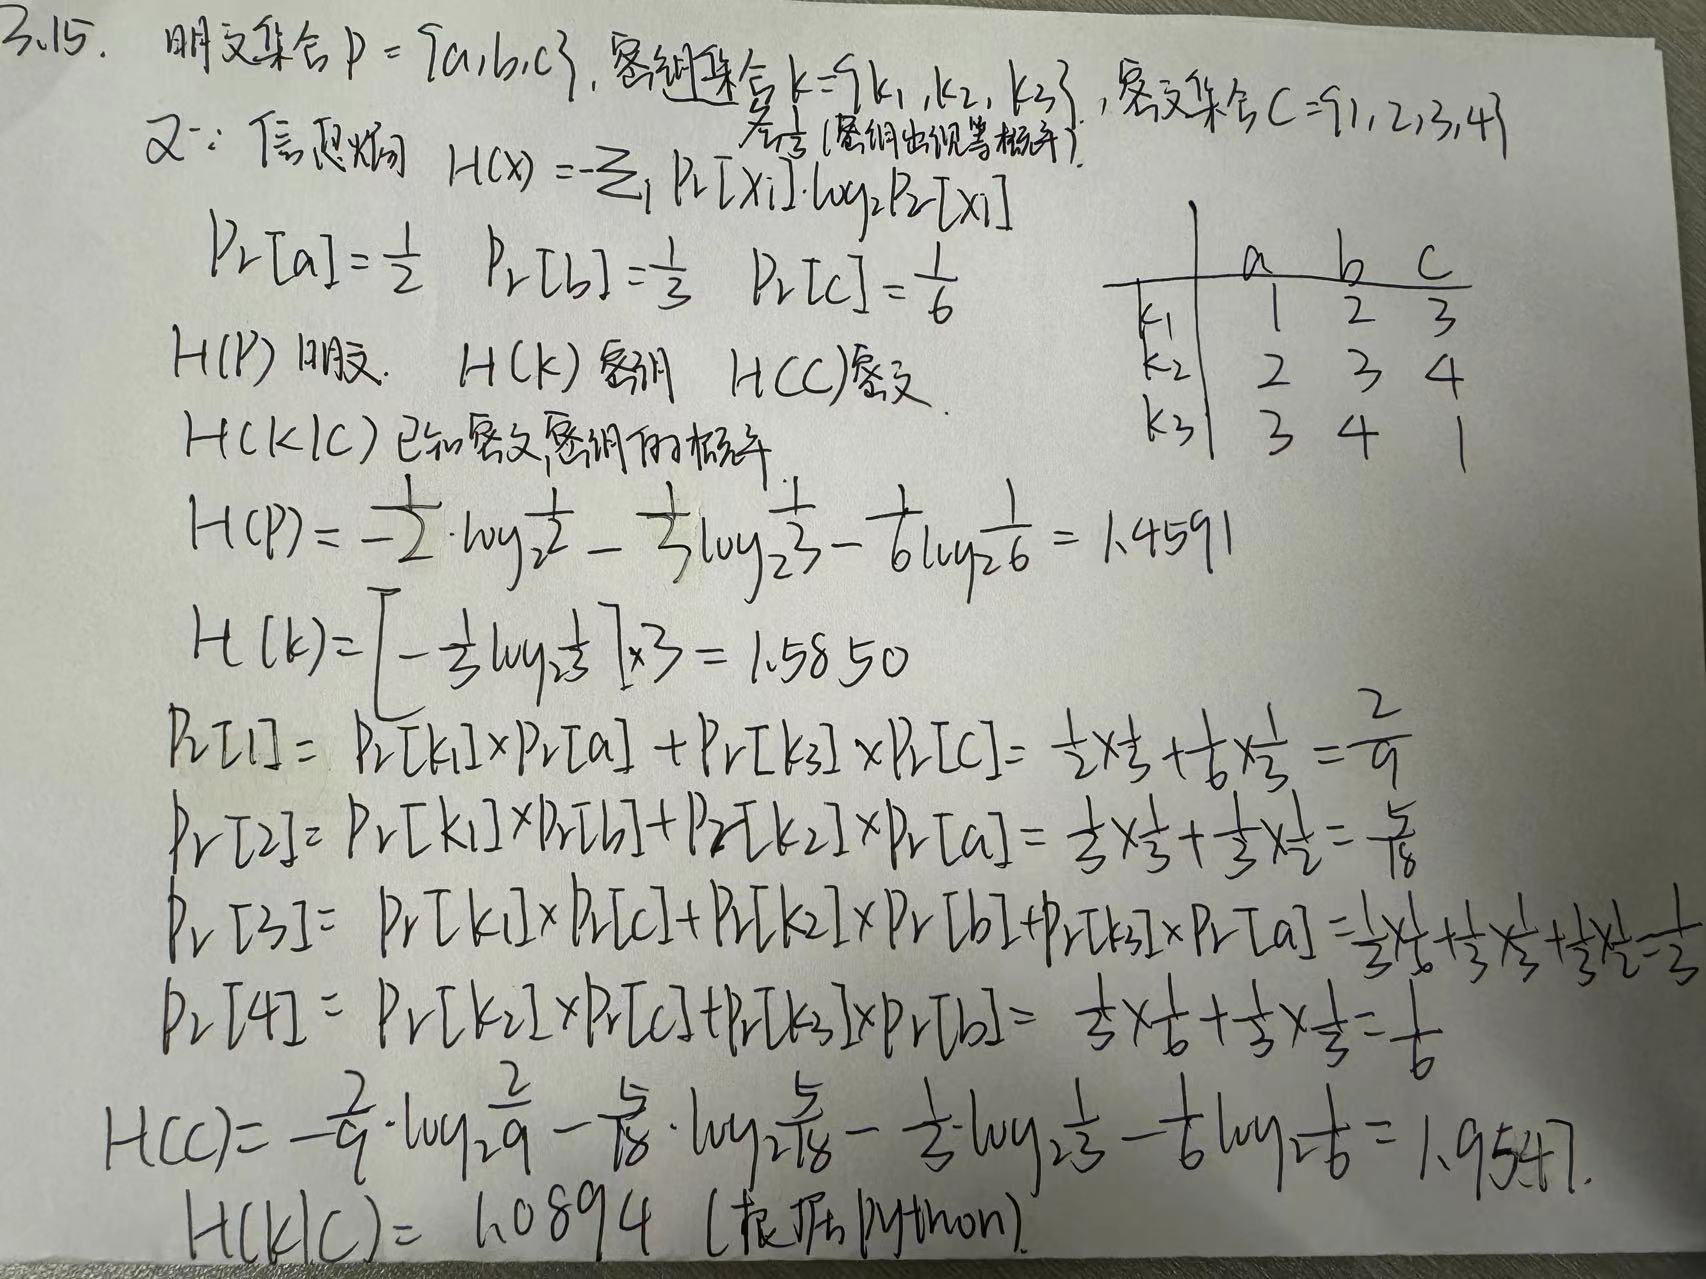 3.15. 明文集合P={a,b,c},密钥集合K={k1,k2,k3},密文集合C={1,2,3,4}
各1/3(密钥出现等概率).
又∵信息熵 H(X)=-Σi Pr[xi]·log2Pr[xi]
Pr[a]=1/2 Pr[b]=1/3 Pr[c]=1/6
a b c
k1 1 2 3
k2 2 3 4
k3 3 4 1
H(P)明文. H(K)密钥 H(C)密文.
H(K|C)已知密文,密钥的概率.
H(P)=-1/2·log2 1/2-1/3log2 1/3-1/6log2 1/6=1.4591
H(K)=[-1/3log2 1/3]×3=1.5850
Pr[1]=Pr[k1]×Pr[a]+Pr[k3]×Pr[c]=1/2×1/3+1/6×1/3=2/9
Pr[2]=Pr[k1]×Pr[b]+Pr[k2]×Pr[a]=1/3×1/3+1/3×1/2=5/18
Pr[3]=Pr[k1]×Pr[c]+Pr[k2]×Pr[b]+Pr[k3]×Pr[a]=1/3×1/6+1/3×1/3+1/3×1/2=1/3
Pr[4]=Pr[k2]×Pr[c]+Pr[k3]×Pr[b]=1/3×1/6+1/3×1/3=1/6
H(C)=-2/9·log2 2/9-5/18·log2 5/18-1/3·log2 1/3-1/6log2 1/6=1.9547.
H(K|C)=1.0894 (根据python).